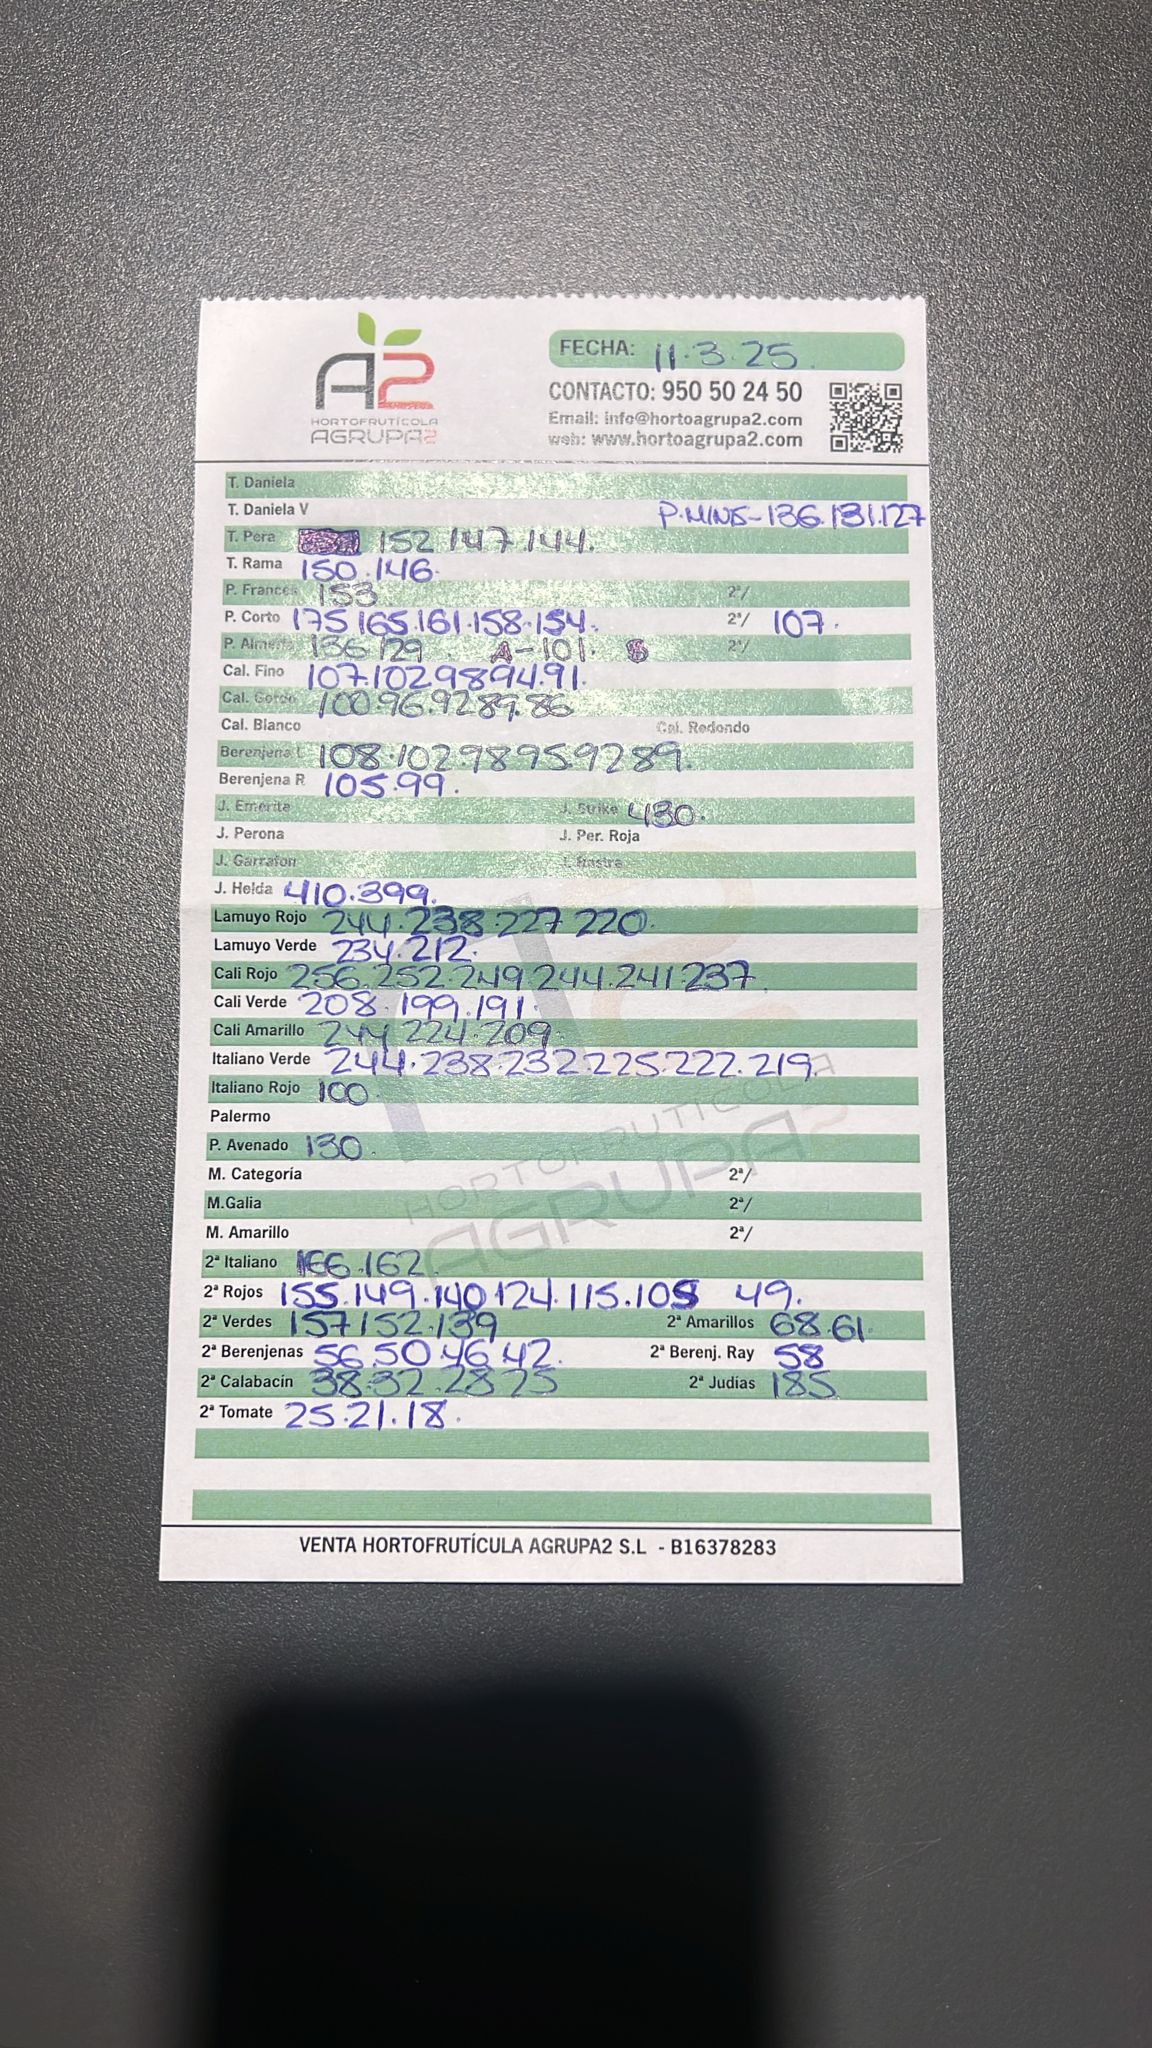 A2
HORTOFRUTÍCOLA
AGRUPA2
FECHA: 11.3.25.
CONTACTO: 950 50 24 50
Email: info@hortoagrupa2.com
web: www.hortoagrupa2.com
T. Daniela
T. Daniela V P.MINI-136.131.127
T. Pera 152.147.144.
T. Rama 150.146.
P. Frances 153 2ª/
P. Corto 175.165.161.158.154. 2ª/ 107.
P. Almeria 136.129. A-101. 2ª/
Cal. Fino 107.102.98.94.91.
Cal. Gordo 100.96.92.89.86
Cal. Blanco Cal. Redondo
Berenjena L 108.102.98.95.92.89.
Berenjena R 105.99.
J. Emerite J. Strike 430.
J. Perona J. Per. Roja
J. Garrafon J. Rastra
J. Helda 410.399.
Lamuyo Rojo 244.238.227.220.
Lamuyo Verde 234.212.
Cali Rojo 256.252.249.244.241.237.
Cali Verde 208.199.191.
Cali Amarillo 244.224.209.
Italiano Verde 244.238.232.225.222.219.
Italiano Rojo 100.
Palermo
P. Avenado 130.
M. Categoría 2ª/
M.Galia 2ª/
M. Amarillo 2ª/
2ª Italiano 166.162.
2ª Rojos 155.149.140.124.115.105 49.
2ª Verdes 157.152.139 2ª Amarillos 68.61.
2ª Berenjenas 56.50.46.42. 2ª Berenj. Ray 58
2ª Calabacín 38.32.28.25 2ª Judías 185
2ª Tomate 25.21.18.
HORTOFRUTICOLA
AGRUPA2
VENTA HORTOFRUTÍCULA AGRUPA2 S.L - B16378283